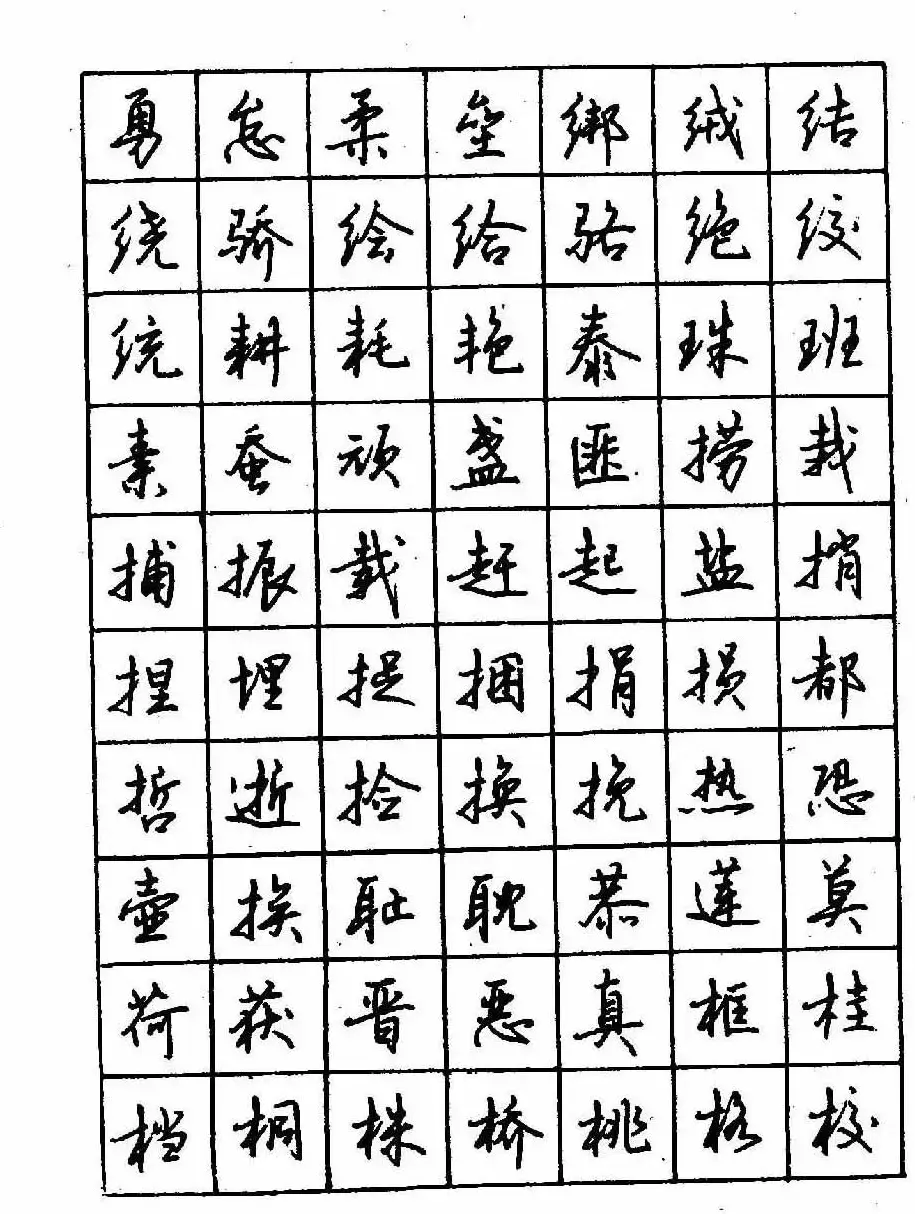 勇怠柔垒绑绒结
绕骄绘给骆绝绞
统耕耗艳泰珠班
素蚕顽盏匪捞栽
捕振载赶起盐捎
捏埋捉捆捐损都
哲逝捡换挽热恐
壶挨耻耽恭莲莫
荷获晋恶真框桂
档桐株桥桃格校